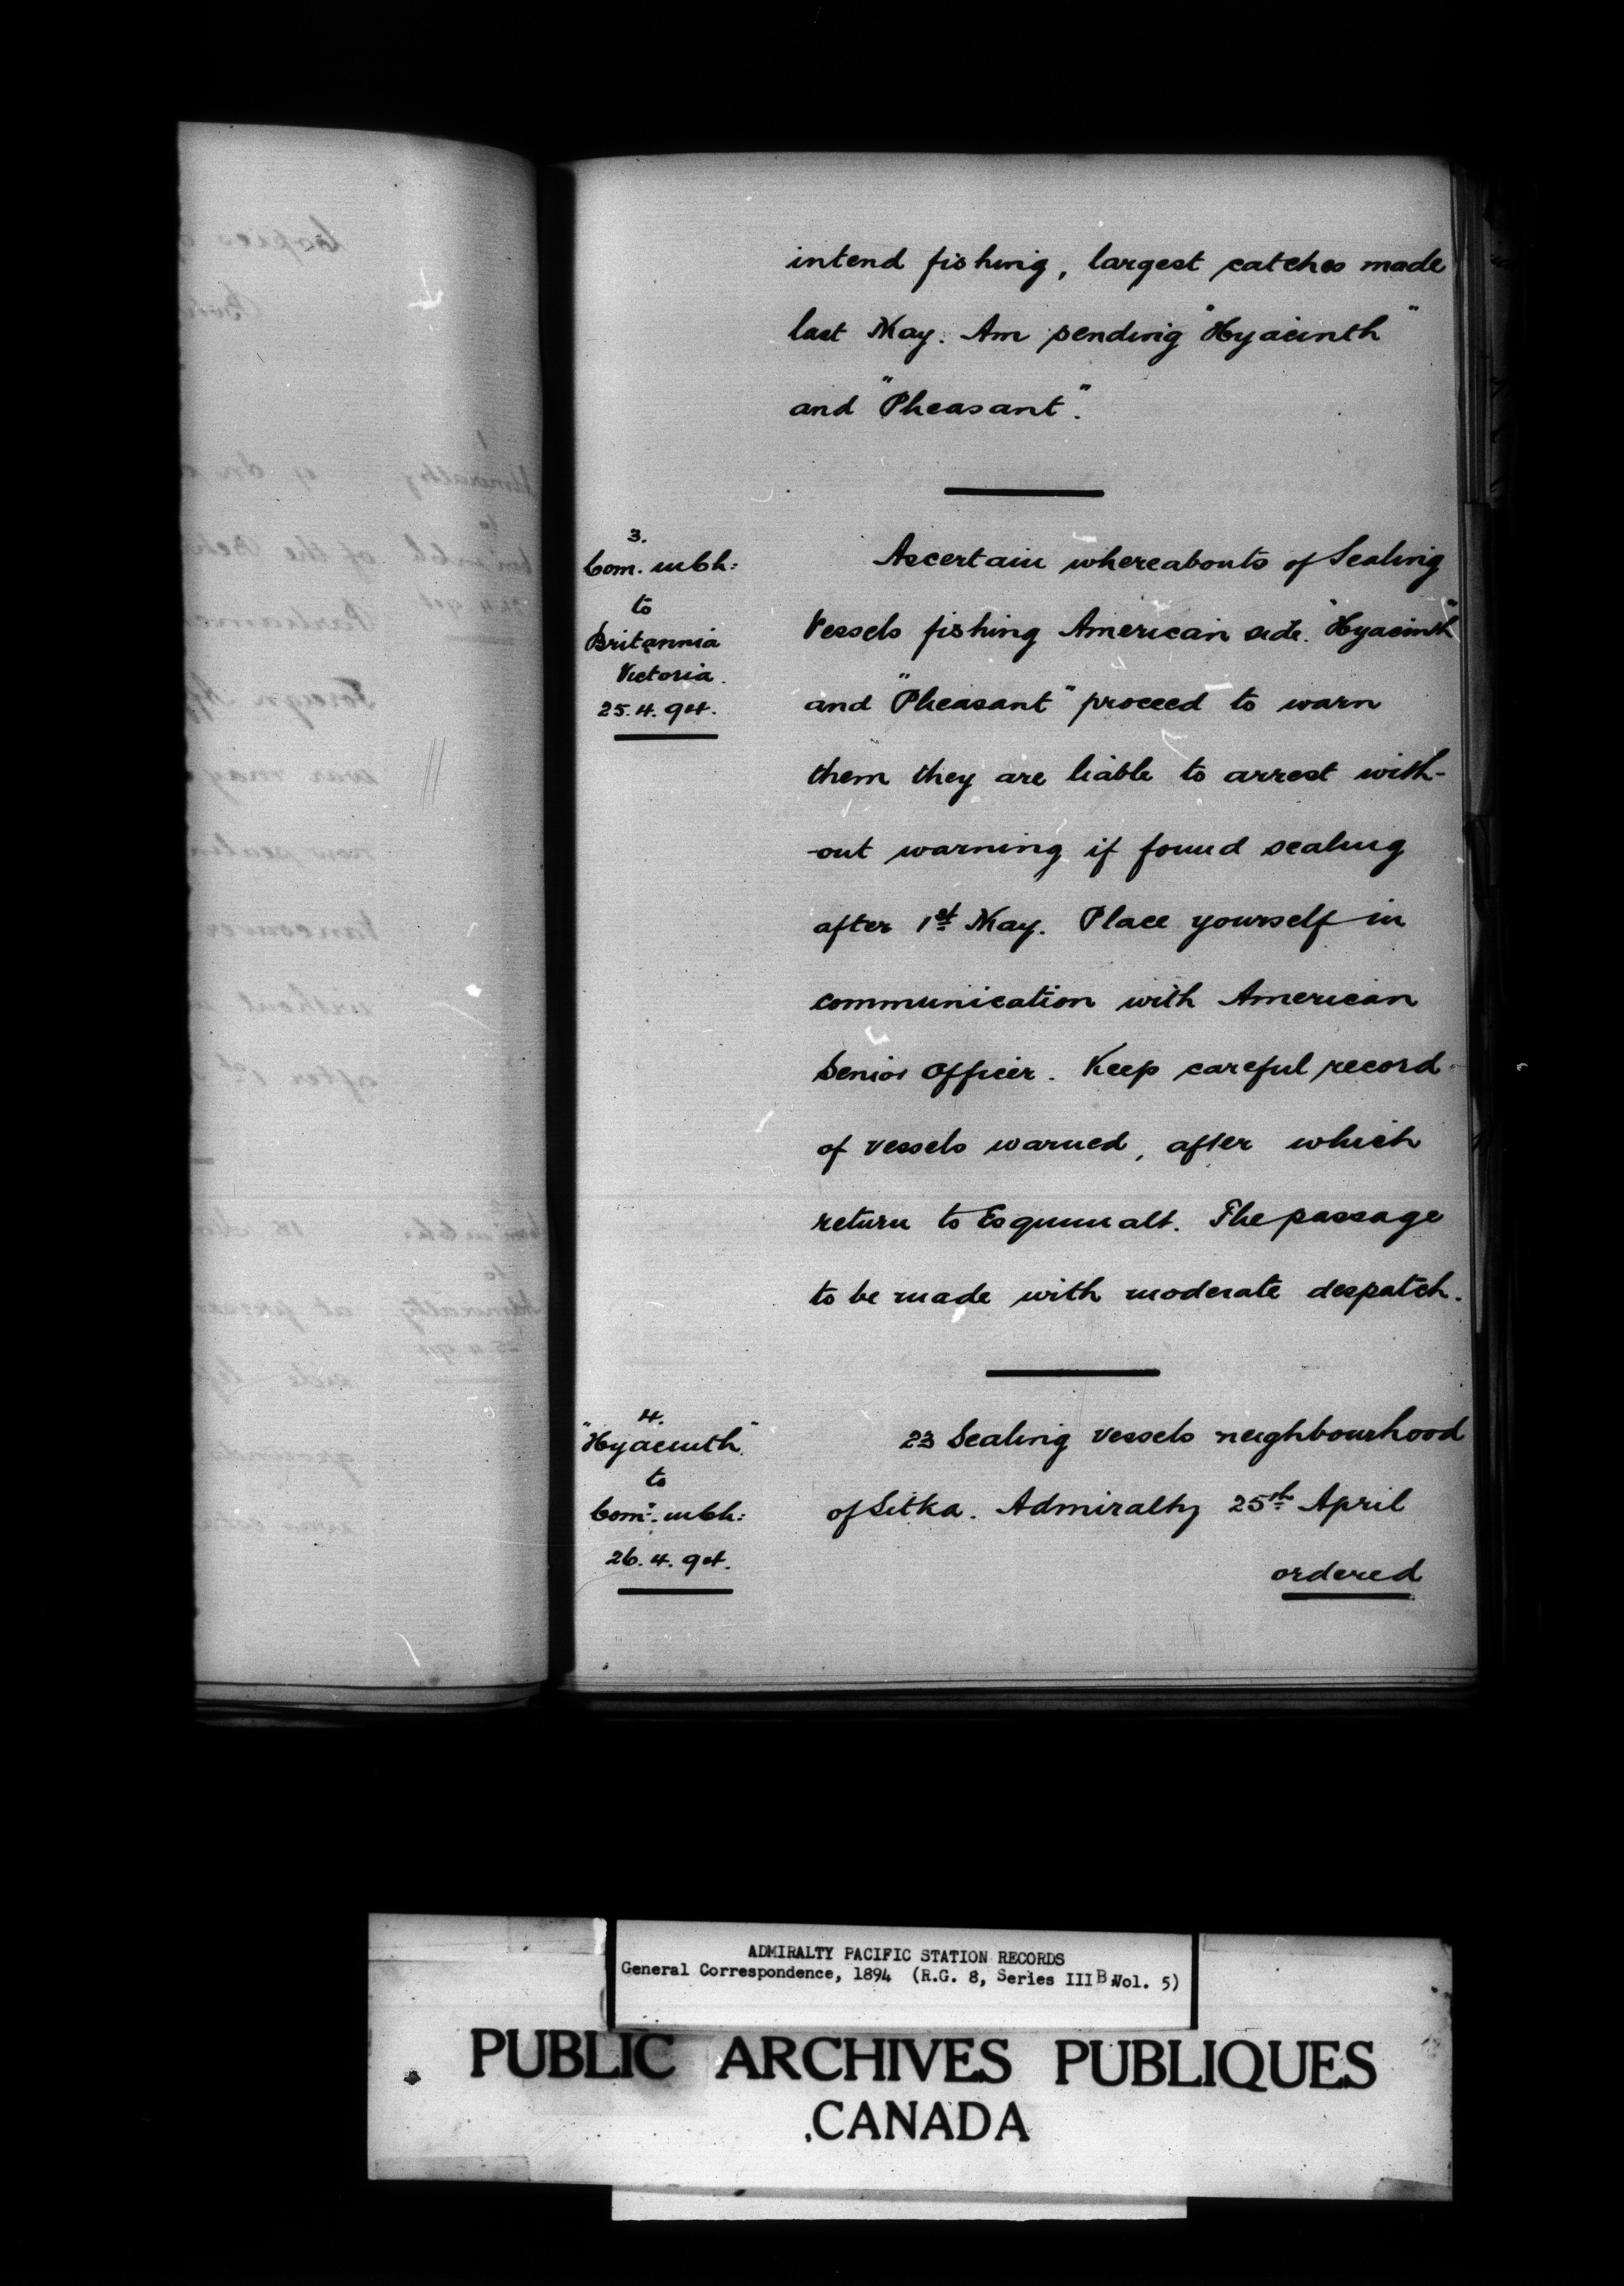 intend fishing, largest catches made
last May. Am sending "Hyacinth"
and "Pheasant".
3.
Com. in Ch:
to
Britannia
Victoria.
25.4.94.
Ascertain whereabouts of Sealing
Vessels fishing American side. "Hyacinth"
and "Pheasant" proceed to warn
them they are liable to arrest with-
-out warning if found sealing
after 1st May. Place yourself in
communication with American
Senior Officer. Keep careful record
of vessels warned, after which
return to Esquimalt. The passage
to be made with moderate despatch.
4.
"Hyacinth".
to
Comr. in Ch:
26.4.94.
23 Sealing vessels neighbourhood
of Sitka. Admiralty 25th April
ordered
ADMIRALTY PACIFIC STATION RECORDS
General Correspondence, 1894 (R.G. 8, Series III B, Vol. 5)
PUBLIC ARCHIVES PUBLIQUES
CANADA